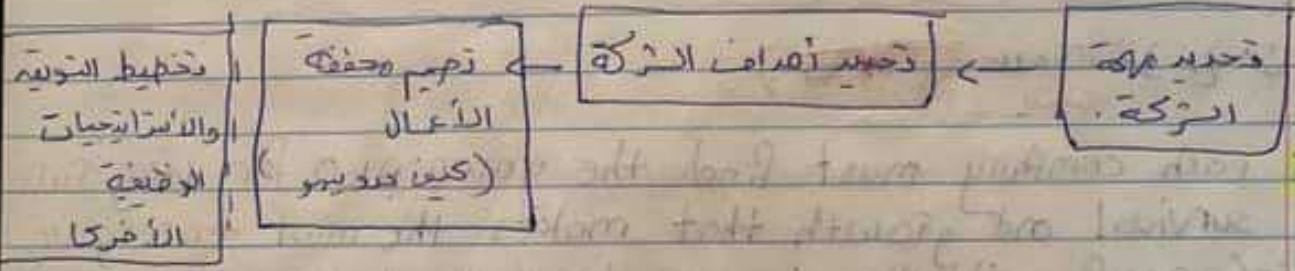 تحديد مهمة
الشركة.
تحديد أهداف الشركة
تصميم محفظة
الأعمال
تخطيط التسويق
والاستراتيجيات
الوظيفية
الأخرى